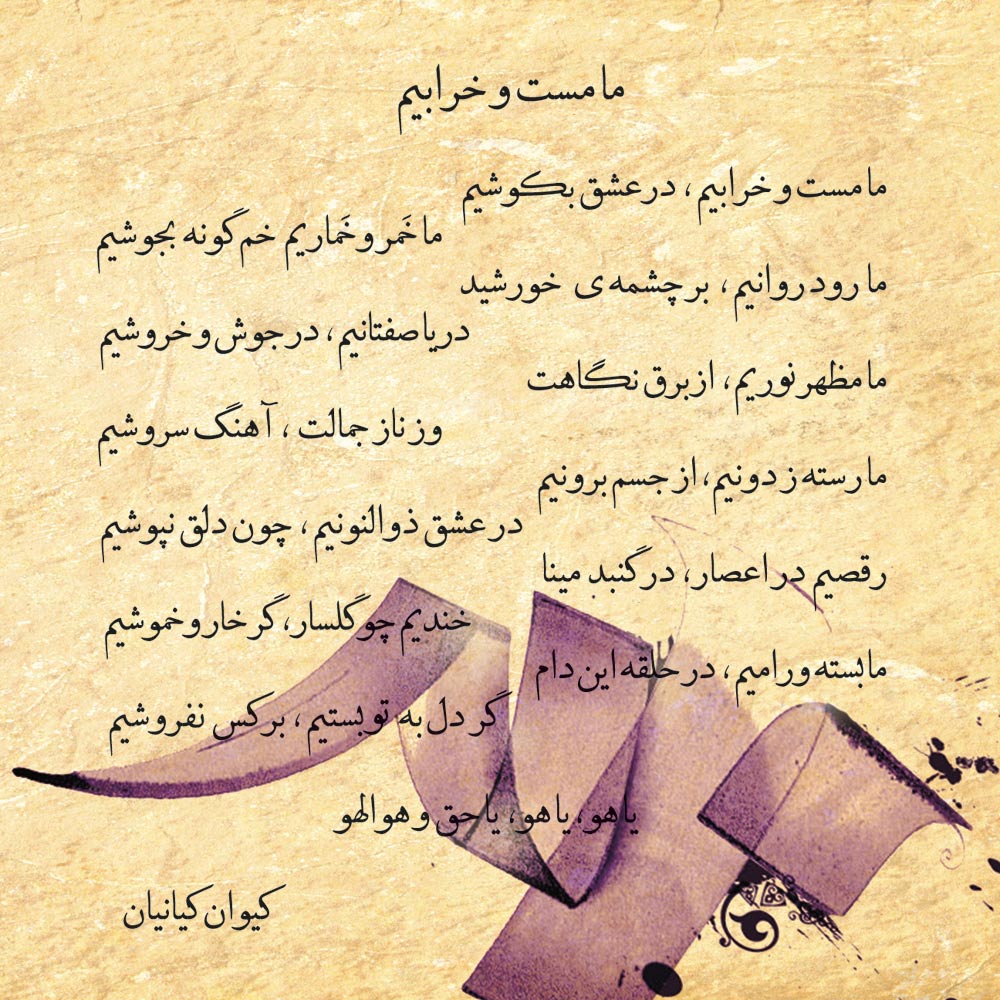 ما مست و خرابیم
ما مست و خرابیم، در عشق بکوشیم
ما خَمر و خَماریم خم گونه بجوشیم
ما رود روانیم، بر چشمه‌ی خورشید
دریا صفتانیم، در جوش و خروشیم
ما مظهر نوریم، از برق نگاهت
وز ناز جمالت، آهنگ سروشیم
ما رسته ز دونیم، از جسم برونیم
در عشق ذوالنونیم، چون دلق نپوشیم
رقصیم در اعصار، در گنبد مینا
خندیم چو گلسار، گر خار و خموشیم
ما بسته و رامیم، در حلقه این دام
گر دل به تو بستیم، بر کس نفروشیم
یا هو، یا هو، یا حق و هو الهو
کیوان کیانیان